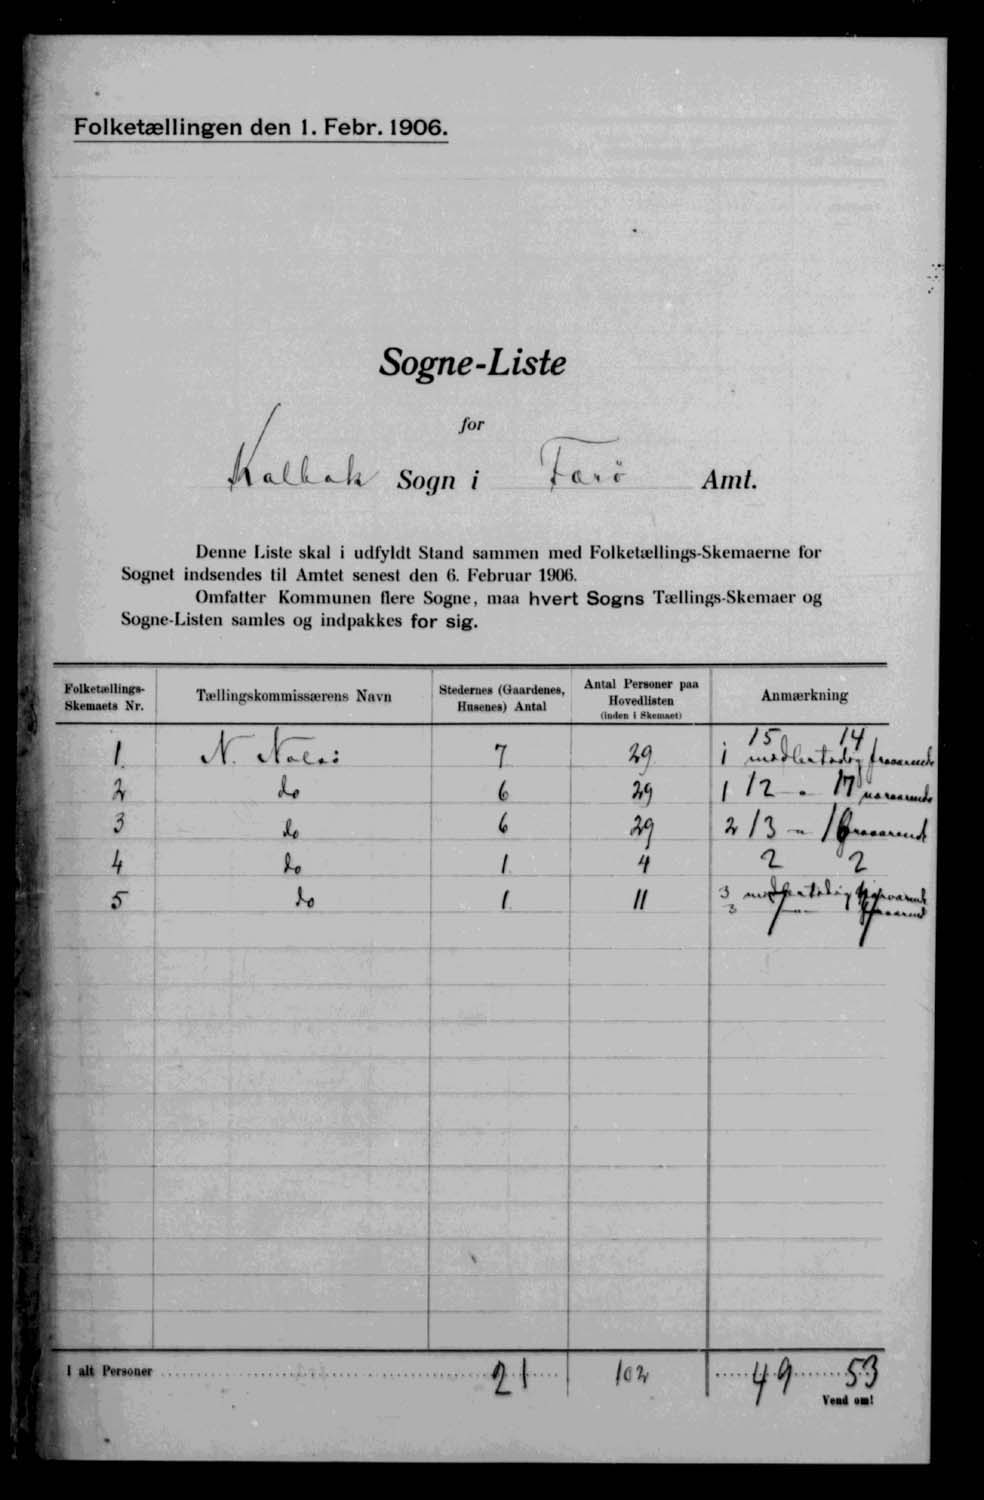 Folketællingen den 1. Febr. 1906.
Sogne-Liste
for
Kalbak Sogn i Færö Amt.
Denne Liste skal i udfyldt Stand sammen med Folketællings-Skemaerne for
Sognet indsendes til Amtet senest den 6. Februar 1906.
Omfatter Kommunen flere Sogne, maa hvert Sogns Tællings-Skemaer og
Sogne-Listen samles og indpakkes for sig.
Folketællings-Skemaets Nr. Tællingskommissærens Navn Stedernes (Gaardenes, Husenes) Antal Antal Personer paa Hovedlisten (inden i Skemaet) Anmærkning
15 14
1 N. Nolsö 7 29 1 midlertidig fraværende
2 do 6 29 1 12 - 17
3 do 6 29 2 13 - 16 fraværende
4 do 1 4 2 2
5 do 1 11 3 midlertidig
3
I alt Personer 21 102 49 53
Vend om!